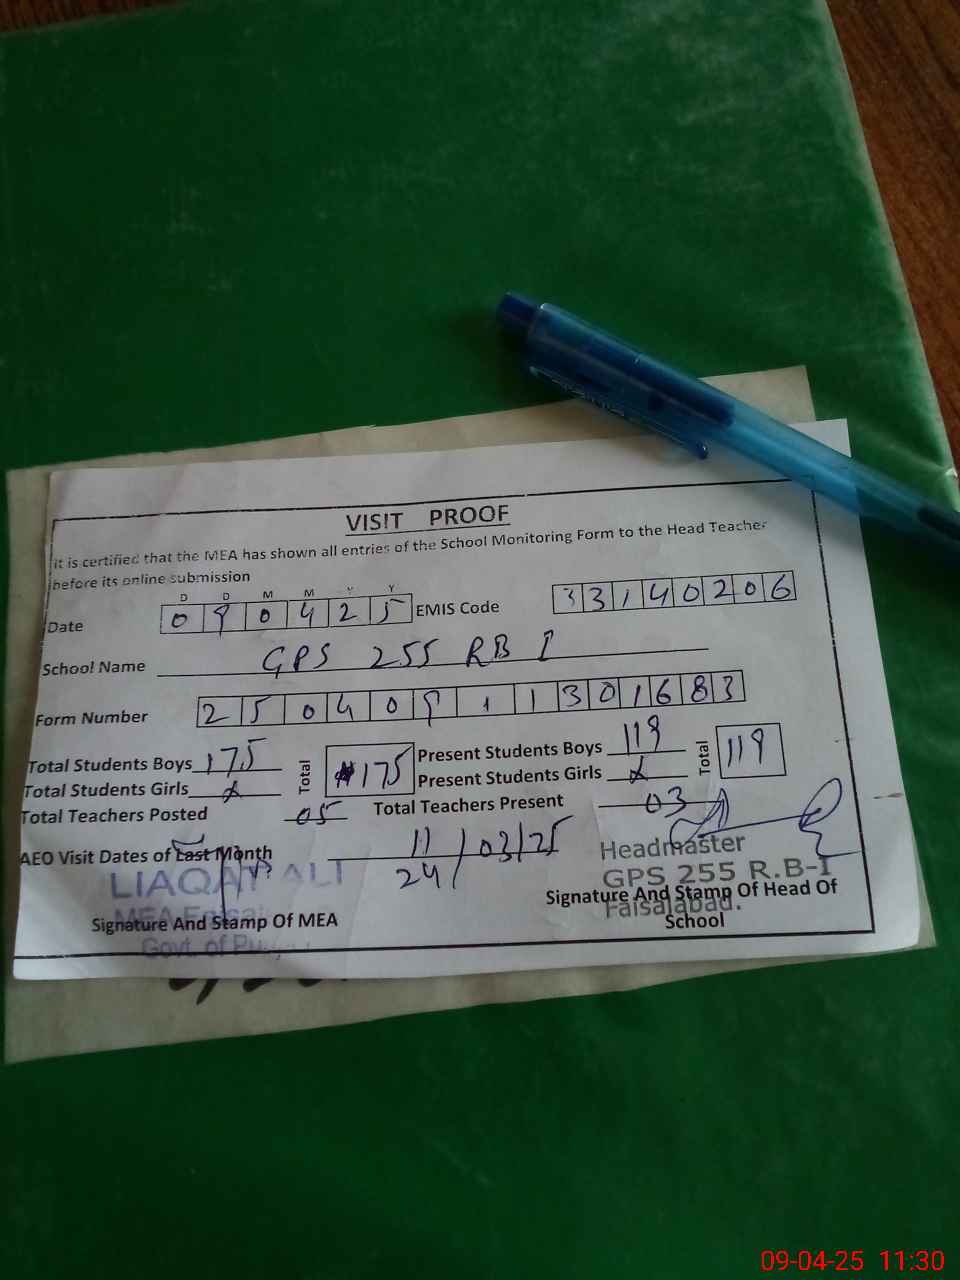 VISIT PROOF
It is certified that the MEA has shown all entries of the School Monitoring Form to the Head Teacher
before its online submission
D D M M Y Y
Date 090425 EMIS Code 33140206
School Name GPS 255 RB I
Form Number 25040911301683
Total Students Boys 175 Total 175 Present Students Boys 119 Total 119
Total Students Girls x Present Students Girls x
Total Teachers Posted 05 Total Teachers Present 03
AEO Visit Dates of Last Month 11/03/25
24/
LIAQAT ALI
MEA
Govt. of
Signature And Stamp Of MEA
Headmaster
GPS 255 R.B-I
Faisalabad.
Signature And Stamp Of Head Of
School
09-04-25 11:30